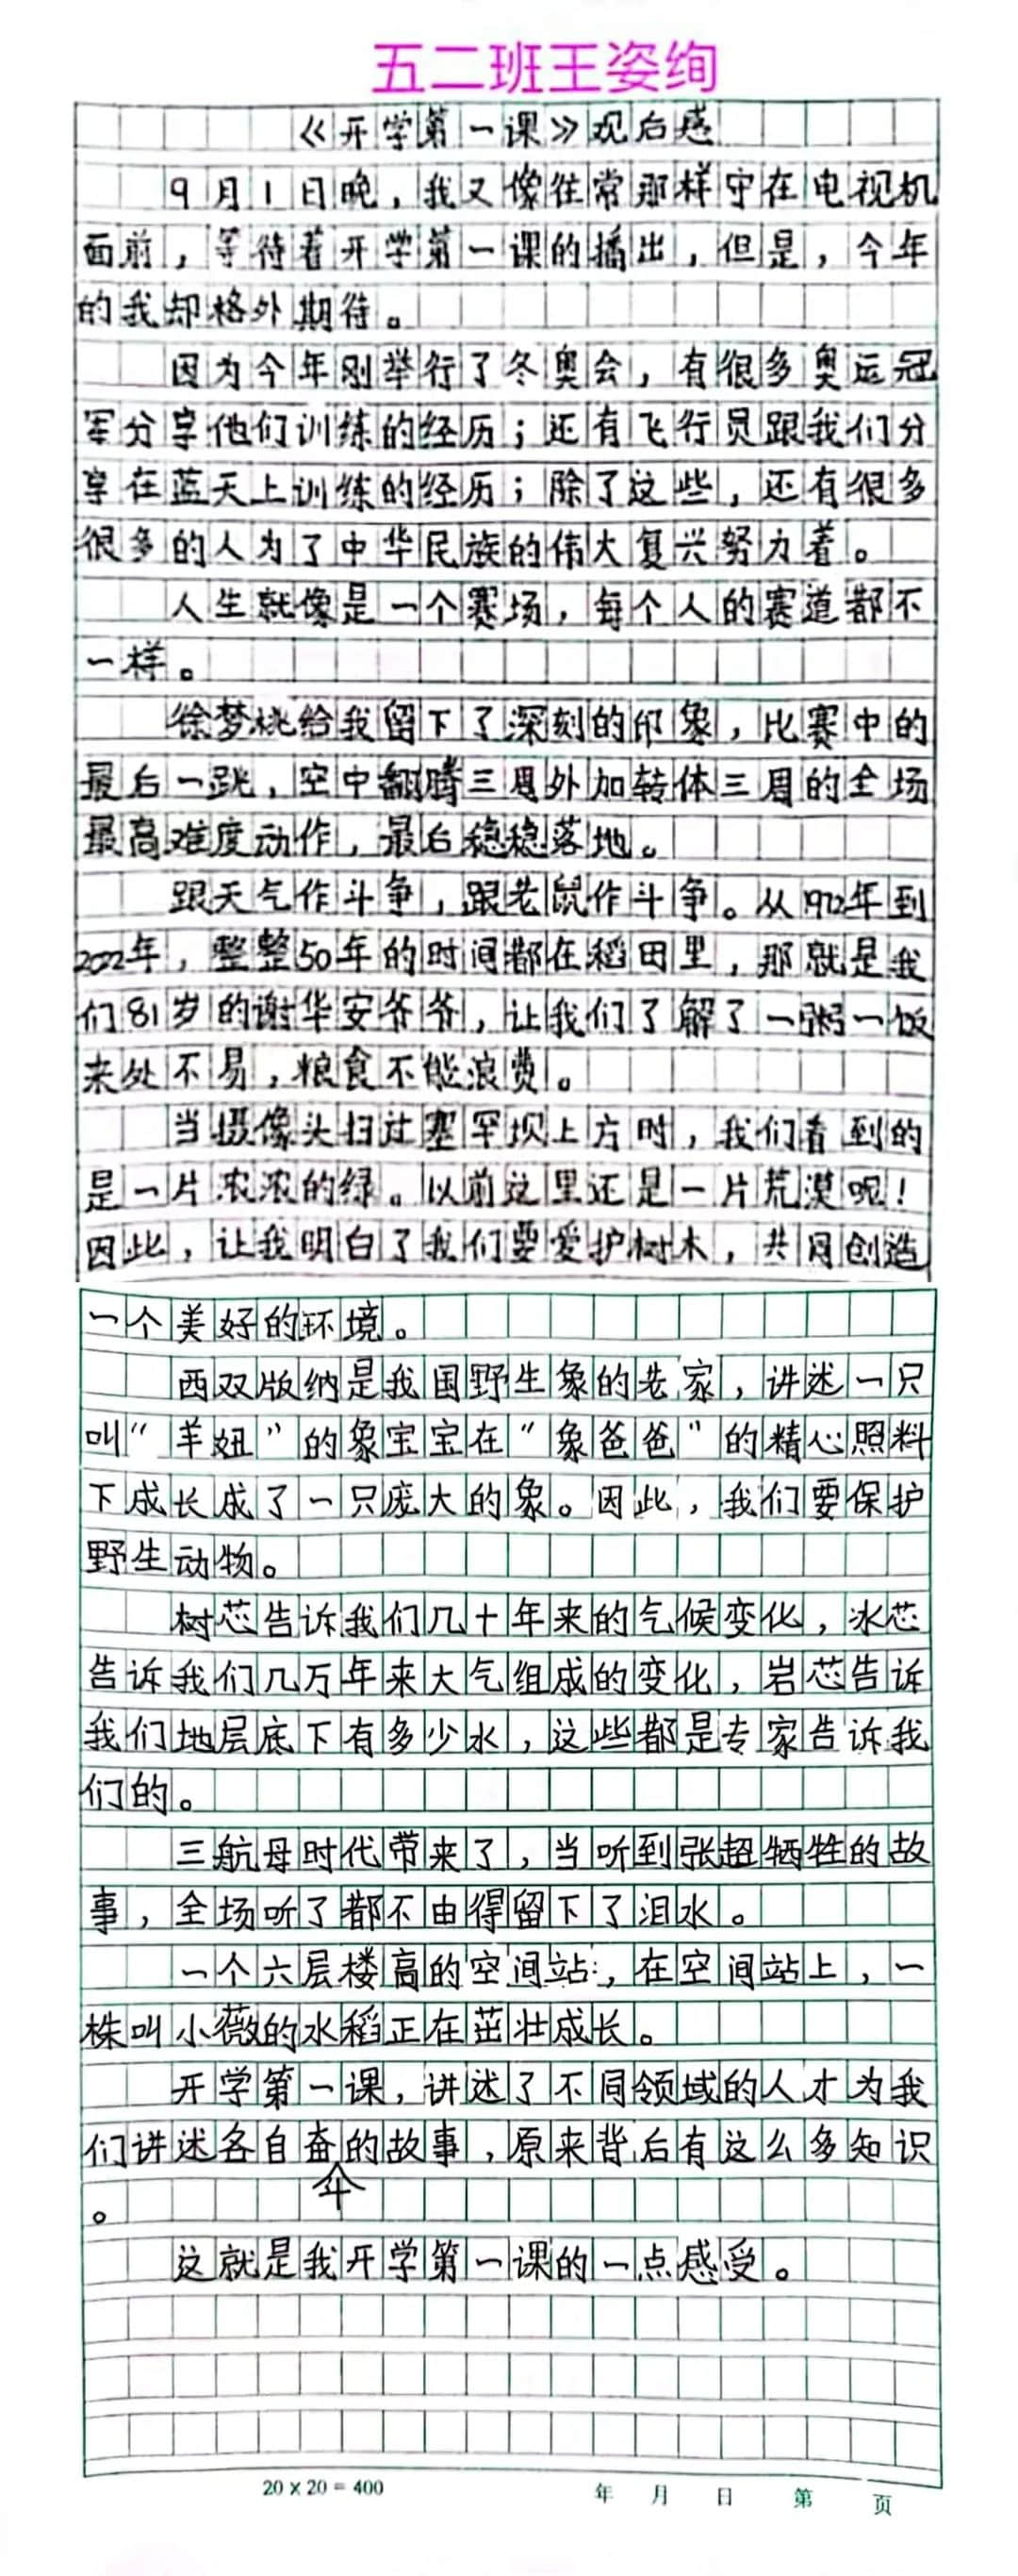 五二班王姿绚
《开学第一课》观后感
9月1日晚，我又像往常那样守在电视机
面前，等待着开学第一课的播出，但是，今年
的我却格外期待。
因为今年刚举行了冬奥会，有很多奥运冠
军分享他们训练的经历；还有飞行员跟我们分
享在蓝天上训练的经历；除了这些，还有很多
很多的人为了中华民族的伟大复兴努力着。
人生就像是一个赛场，每个人的赛道都不
一样。
徐梦桃给我留下了深刻的印象，比赛中的
最后一跳，空中翻腾三周外加转体三周的全场
最高难度动作，最后稳稳落地。
跟天气作斗争，跟老鼠作斗争。从1972年到
2022年，整整50年的时间都在稻田里，那就是我
们81岁的谢华安爷爷，让我们了解了一粥一饭
来处不易，粮食不能浪费。
当摄像头扫过塞罕坝上方时，我们看到的
是一片浓浓的绿。以前这里还是一片荒漠呢！
因此，让我明白了我们要爱护树木，共同创造
一个美好的环境。
西双版纳是我国野生象的老家，讲述一只
叫“羊妞”的象宝宝在“象爸爸”的精心照料
下成长成了一只庞大的象。因此，我们要保护
野生动物。
树芯告诉我们几十年来的气候变化，冰芯
告诉我们几万年来大气组成的变化，岩芯告诉
我们地层底下有多少水，这些都是专家告诉我
们的。
三航母时代带来了，当听到张超牺牲的故
事，全场听了都不由得留下了泪水。
一个六层楼高的空间站，在空间站上，一
株叫小薇的水稻正在茁壮成长。
开学第一课，讲述了不同领域的人才为我
们讲述各自奋的故事，原来背后有这么多知识
。
这就是我开学第一课的一点感受。
20×20=400 年 月 日 第 页